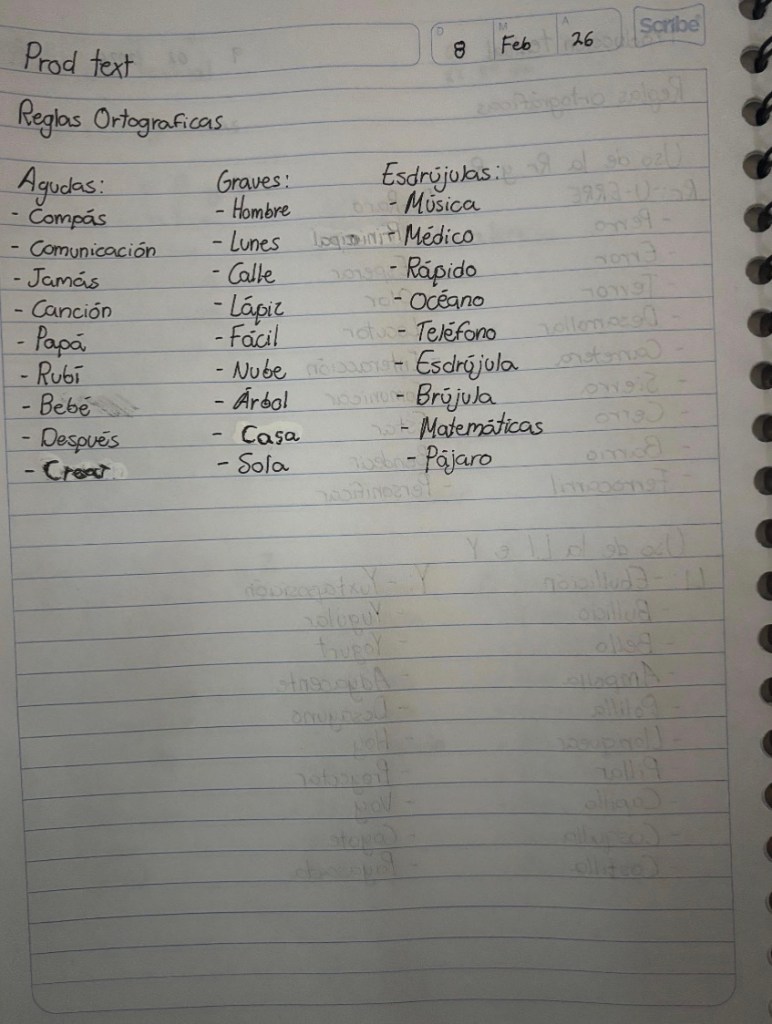 Scribe
D M A
8 Feb 26
Prod text
Reglas Ortograficas
Agudas:
- Compás
- Comunicación
- Jamás
- Canción
- Papá
- Rubí
- Bebé
- Después
- Crear
Graves:
- Hombre
- Lunes
- Calle
- Lápiz
- Fácil
- Nube
- Árbol
- Casa
- Sola
Esdrújulas:
- Música
- Médico
- Rápido
- Océano
- Teléfono
- Esdrújula
- Brújula
- Matemáticas
- Pájaro